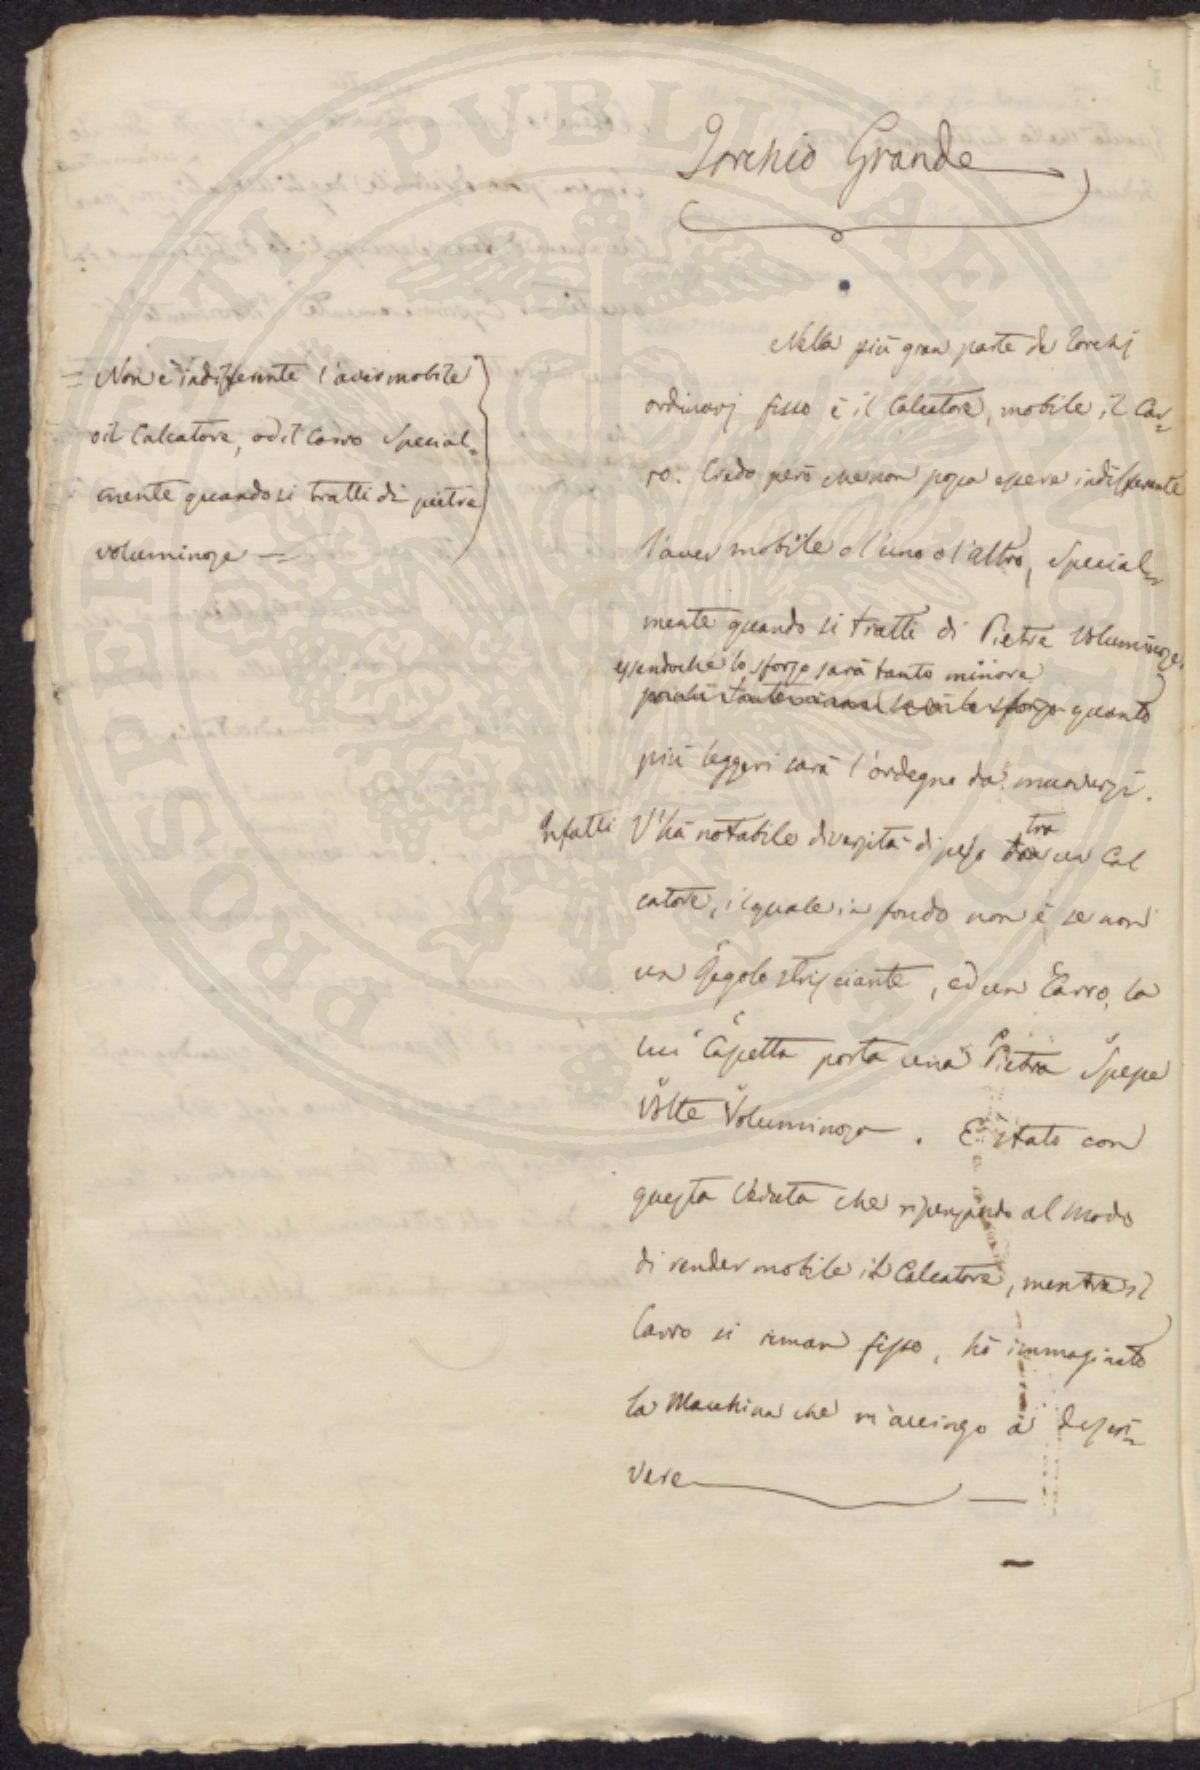 Torchio Grande
Nella più gran parte de Torchj
ordinarj fisso è il Calcatore, mobile il Car=
ro. Credo però che non possa essere indifferente
l'aver mobile o l'uno o l'altro, Special=
mente quando si tratti di Pietre Voluminose,
essendochè lo sforzo sarà tanto minore
quanto
più leggeri sarà l'ordegno da muoversi.
Infatti V'hà notabile diversità di peso tra un Cal
catore, il quale in fondo non è se non
un Regolo strisciante, ed un Carro, la
cui Cassetta porta una Pietra Spesse
Volte Voluminosa. È stato con
questa Veduta che ripensando al modo
di render mobile il Calcatore, mentre il
Carro si riman fisso, hò immaginato
la Macchina che m'accingo à descri=
vere
= Non è indifferente l'aver mobile
o il Calcatore, od il Carro Special=
mente quando si tratti di pietre
voluminose =
PROSPERITATI PVBLICAE AVGENDAE